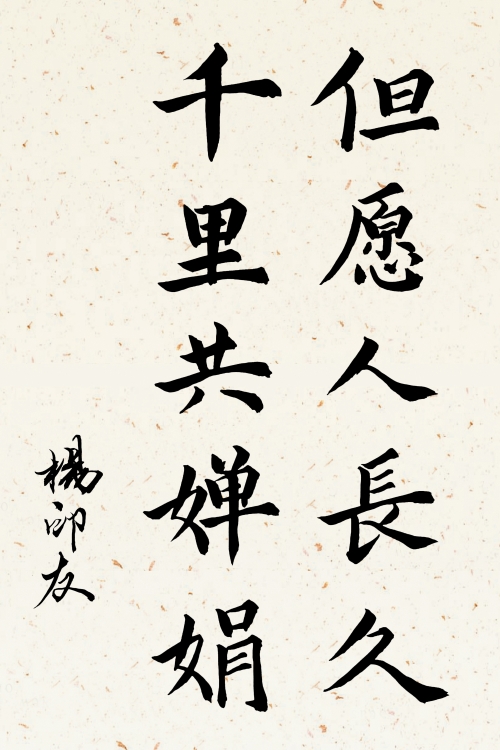 但愿人長久
千里共婵娟
楊印友